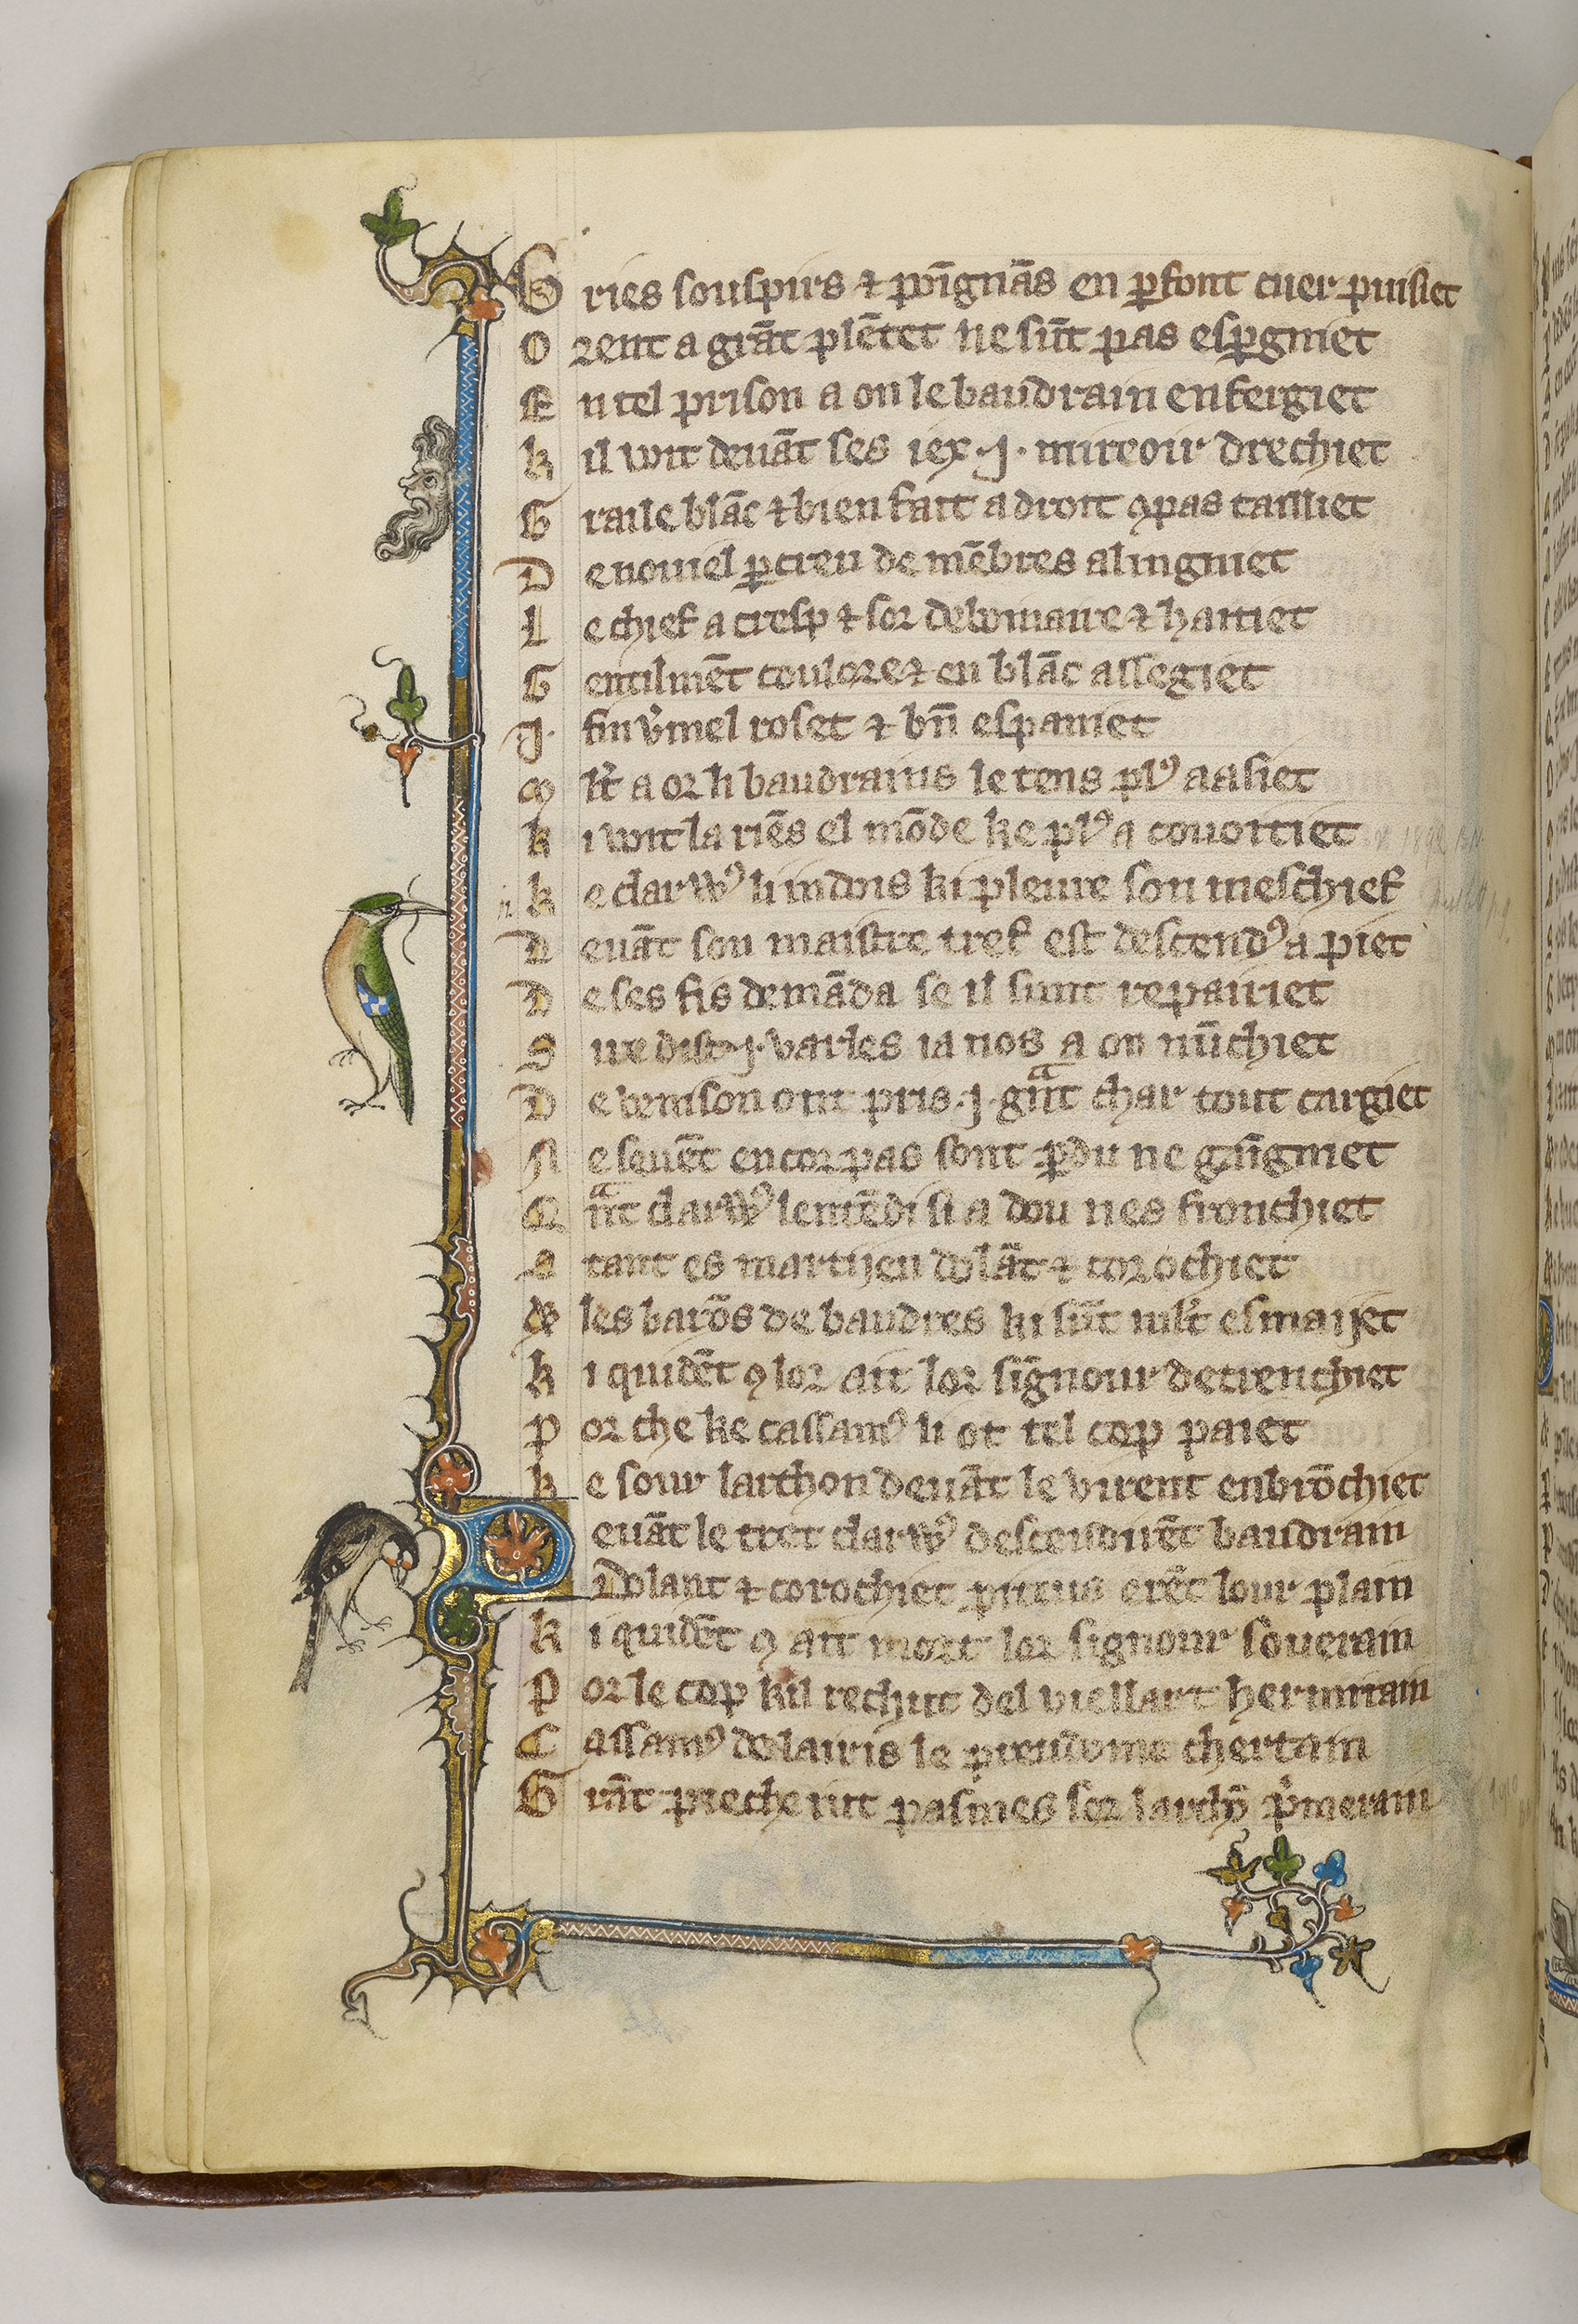 G ries souspirs ⁊ poīgnās en ꝑfont cuer puisiet
O rent a grāt plētet ne sūt pas esꝑgniet
E n tel prison a on le baudrain enfergiet
k il voit deuāt ses iex .j. mireoir drechiet
G raile blāc ⁊ bien fait a droit ꝯpas tailliet
D e nouiel ꝑcreu de mēbres alingniet
L e chief a cresp ⁊ sor debonaire ⁊ haitiet
G entilmēt coulore ⁊ en blāc assegiet
J. fin v̾mel roset ⁊ bn̄ espaniet
m lt̄ a or li baudrains le tens plꝰ aasiet
k i voit la riēs el mōde ke plꝰ a couoitiet
k e clarvꝰ li indois ki pleure son meschief
D euāt son maistre tref est descendꝰ a piet
D e ses fis demāda se il sunt repairiet
S ire dist .j. varles ia nos a on nūchiet
D e venison ont pris .j. gᵃnt char tout cargiet
N e seuēt encor pas sont ꝑdu ne gāgniet
Q ᵃnt clarvꝰ lentēdi si a dou nes fronchiet
a tant es martijen dolāt ⁊ corochiet
& les barōs de baudres ki sūt mlt̄ esmaijet
k i quidēt ꝯ lor ait lor signour detrenchiet
P or che ke cassamꝰ li ot tel cop paiet
k e sour larchon deuāt le virent enbrōchiet
D euāt le tret clarvꝰ descendirēt baudrain
Dolant ⁊ corochiet pitus erēt lour plain
K i quidēt ꝯ ait mort lor signour souerain
P or le cop kil rechut del viellart hermitain
C assamꝰ de lairis le preudome chertain
G rāt pieche iut pasmes sor larchō p̾merain